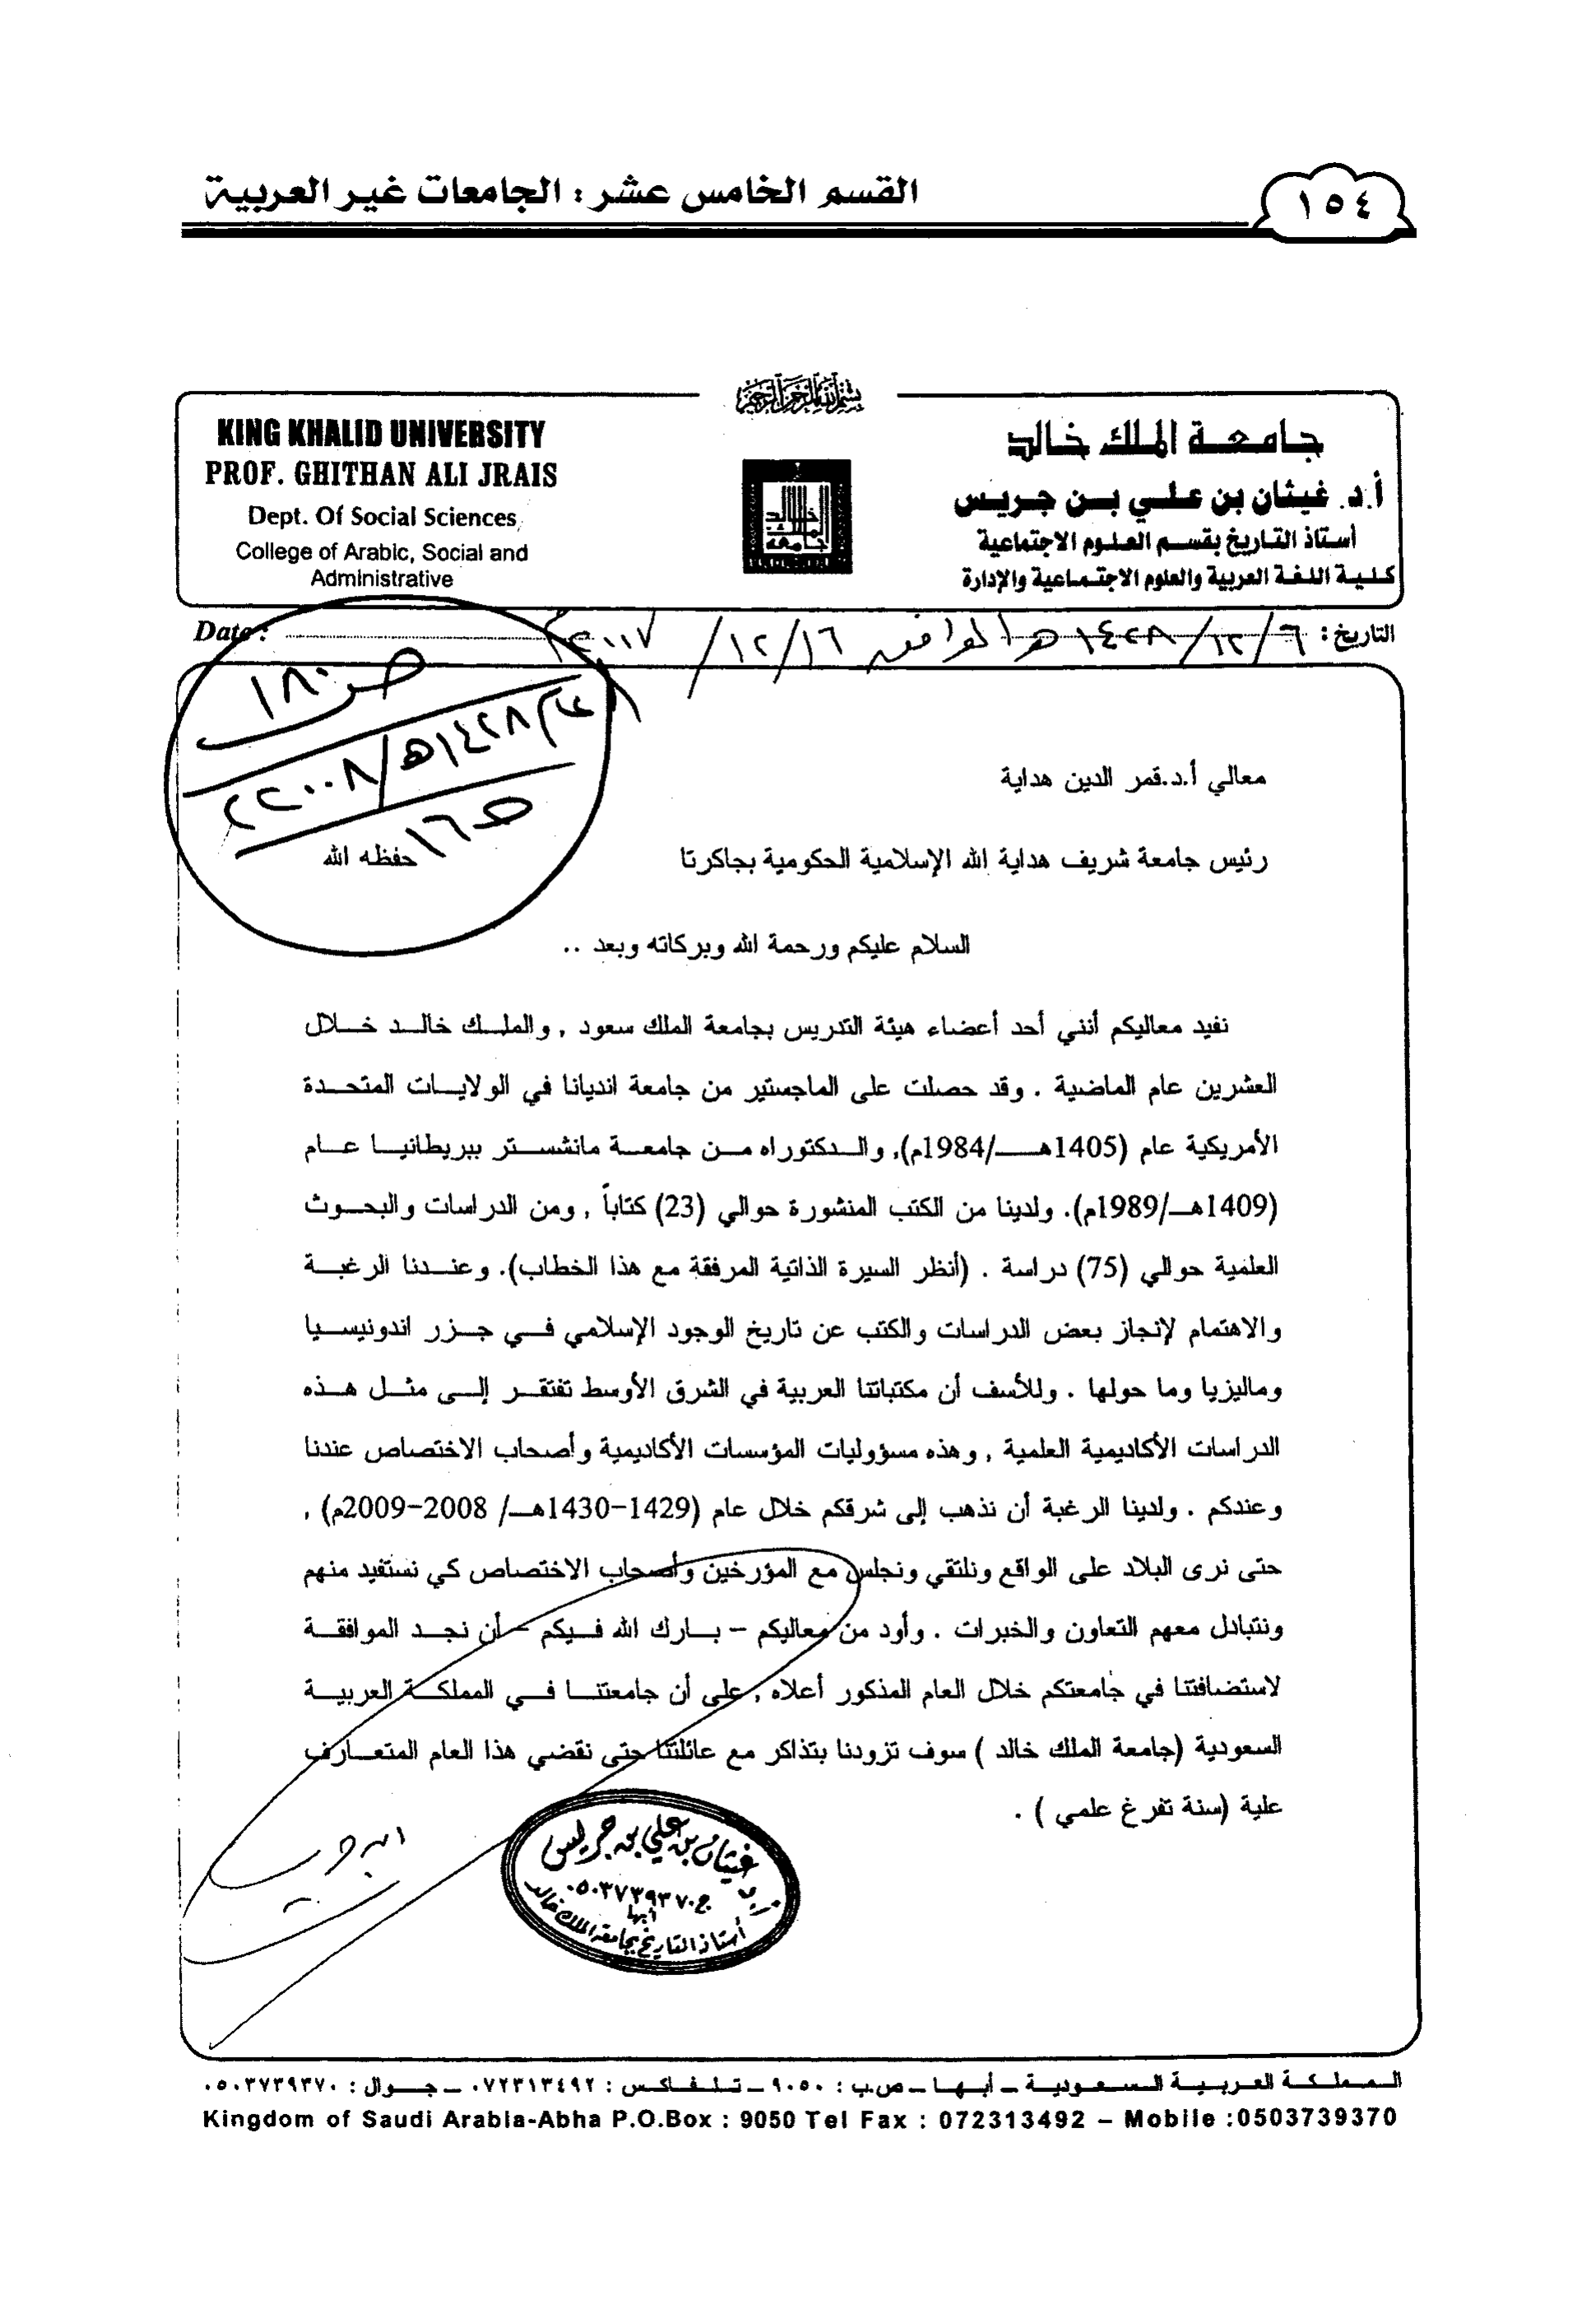 ١٥٤
القسم الخامس عشر : الجامعات غير العربية
بسم الله الرحمن الرحيم
جامعة الملك خالد
أ.د. غيثان بن علي بن جريس
أستاذ التاريخ بقسم العلوم الاجتماعية
كلية اللغة العربية والعلوم الاجتماعية والإدارة
خالد
الملك
جامعة
KING KHALID UNIVERSITY
PROF. GHITHAN ALI JRAIS
Dept. Of Social Sciences,
College of Arabic, Social and
Administrative
التاريخ : ٦/١٢/١٤٢٨هـ الموافق ١٦/١٢/٢٠٠٧م
Date :
ص١٨٠
١٤٢٨هـ/٢٠٠٨م
ص١٦
معالي أ.د.قمر الدين هداية
رئيس جامعة شريف هداية الله الإسلامية الحكومية بجاكرتا حفظه الله
السلام عليكم ورحمة الله وبركاته وبعد ..
نفيد معاليكم أنني أحد أعضاء هيئة التدريس بجامعة الملك سعود , والملك خالد خلال
العشرين عام الماضية . وقد حصلت على الماجستير من جامعة انديانا في الولايات المتحدة
الأمريكية عام (1405هـ/1984م), والدكتوراه من جامعة مانشستر ببريطانيا عام
(1409هـ/1989م). ولدينا من الكتب المنشورة حوالي (23) كتاباً , ومن الدراسات والبحوث
العلمية حوالي (75) دراسة . (أنظر السيرة الذاتية المرفقة مع هذا الخطاب). وعندنا الرغبة
والاهتمام لإنجاز بعض الدراسات والكتب عن تاريخ الوجود الإسلامي في جزر اندونيسيا
وماليزيا وما حولها . وللأسف أن مكتباتنا العربية في الشرق الأوسط تفتقر إلى مثل هذه
الدراسات الأكاديمية العلمية , وهذه مسؤوليات المؤسسات الأكاديمية وأصحاب الاختصاص عندنا
وعندكم . ولدينا الرغبة أن نذهب إلى شرقكم خلال عام (1429-1430هـ/ 2008-2009م) ,
حتى نرى البلاد على الواقع ونلتقي ونجلس مع المؤرخين وأصحاب الاختصاص كي نستفيد منهم
ونتبادل معهم التعاون والخبرات . وأود من معاليكم – بارك الله فيكم – أن نجد الموافقة
لاستضافتنا في جامعتكم خلال العام المذكور أعلاه , على أن جامعتنا في المملكة العربية
السعودية (جامعة الملك خالد ) سوف تزودنا بتذاكر مع عائلتنا حتى نقضي هذا العام المتعارف
علية (سنة تفرغ علمي ) .
غيثان بن علي بن جريس
ج.٠٥٠٣٧٣٩٣٧٠
أبها
أستاذ التاريخ بجامعة الملك خالد
المملكة العربية السعودية – أبها – ص.ب : ٩٠٥٠ – تلفاكس : ٠٧٢٣١٣٤٩٢ – جوال : ٠٥٠٣٧٣٩٣٧٠
Kingdom of Saudi Arabia-Abha P.O.Box : 9050 Tel Fax : 072313492 – Mobile :0503739370